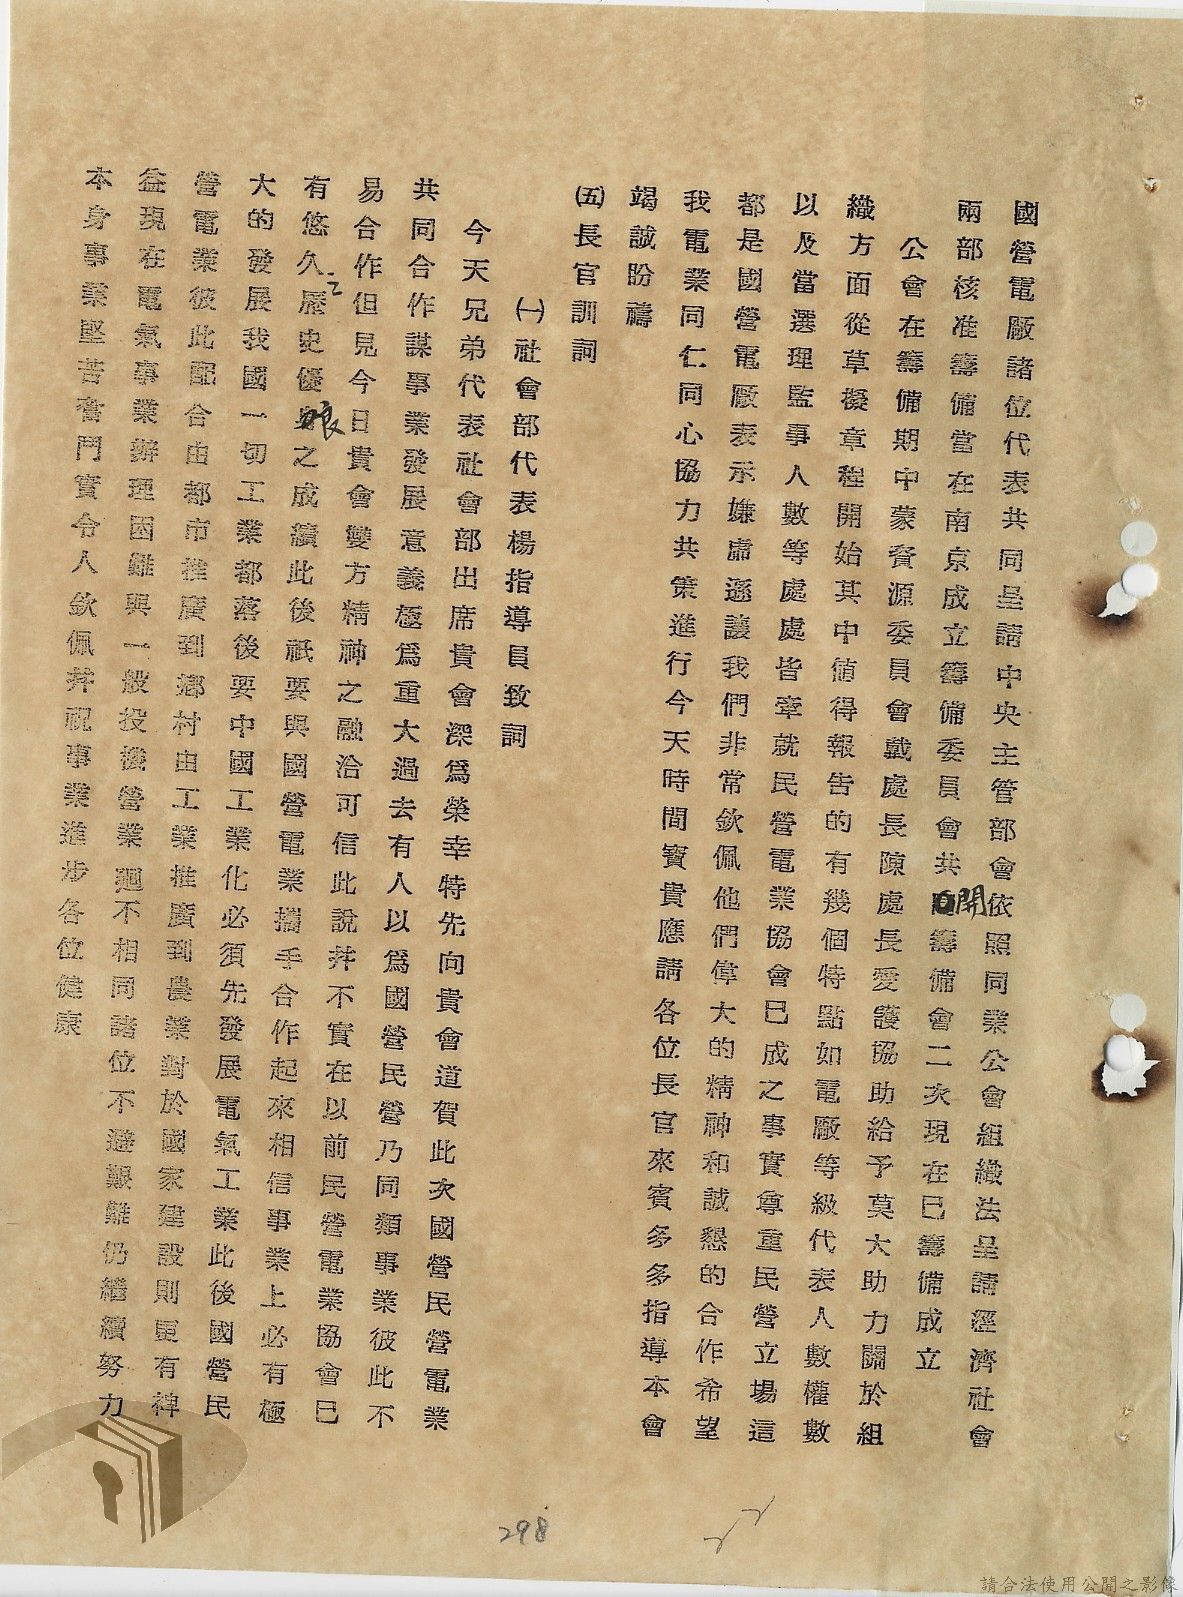 國營電廠諸位代表共同呈請中央主管部會依照同業公會組織法呈請經濟社會
兩部核准籌備當在南京成立籌備委員會共開籌備會二次現在已籌備成立
公會在籌備期中蒙資源委員會戴處長陳處長愛護協助給予莫大助力關於組
織方面從草擬章程開始其中值得報告的有幾個特點如電廠等級代表人數權數
以及當選理監事人數等處處皆牽就民營電業協會已成之事實尊重民營立場這
都是國營電廠表示嫌虛遜讓我們非常欽佩他們偉大的精神和誠懇的合作希望
我電業同仁同心協力共策進行今天時間寶貴應請各位長官來賓多多指導本會
竭誠盼禱
㈤長官訓詞
㈠社會部代表楊指導員致詞
今天兄弟代表社會部出席貴會深為榮幸特先向貴會道賀此次國營民營電業
共同合作謀事業發展意義極為重大過去有人以為國營民營乃同類事業彼此不
易合作但見今日貴會雙方精神之融洽可信此說并不實在以前民營電業協會已
有悠久之歷史優良之成績此後祇要與國營電業攜手合作起來相信事業上必有極
大的發展我國一切工業都落後要中國工業化必須先發展電氣工業此後國營民
營電業彼此配合由都市推廣到鄉村由工業推廣到農業對於國家建設則更有裨
益現在電氣事業辦理困難與一般投機營業迥不相同諸位不避艱難仍繼續努力
本身事業堅苦奮鬥實令人欽佩并祝事業進步各位健康
298
請合法使用公開之影像